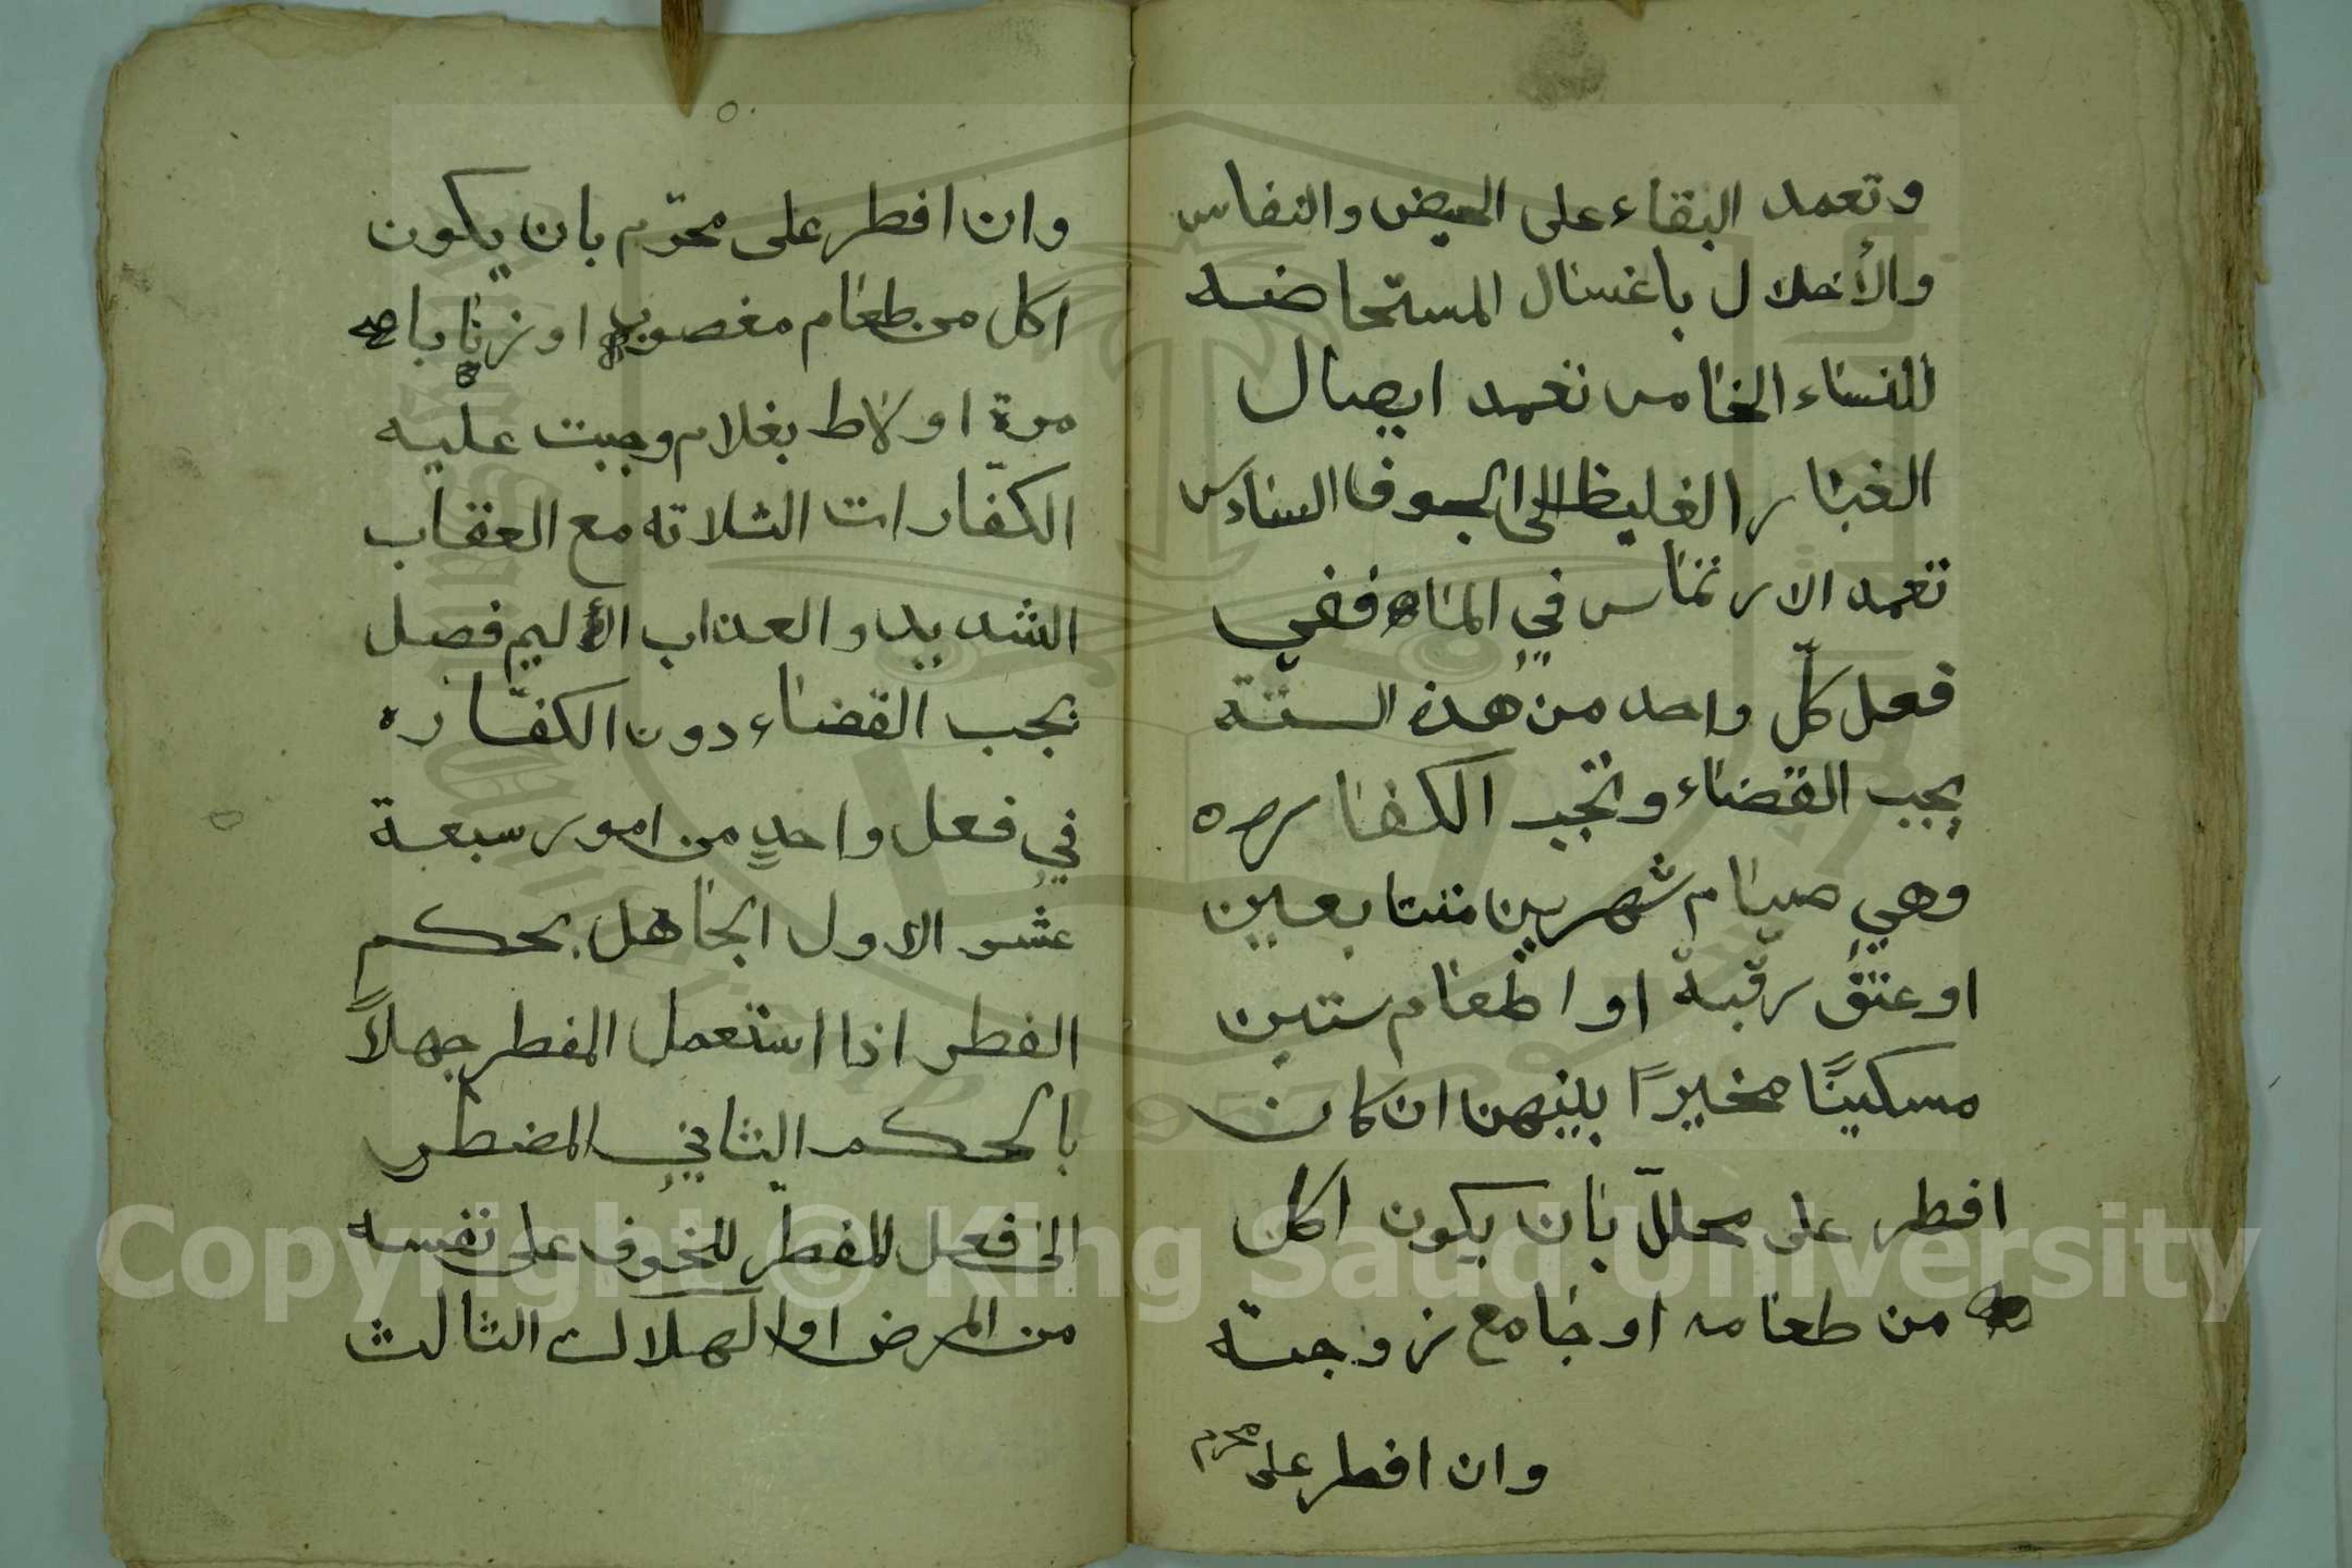 وتعمد البقاء على الحيض والنفاس
والأخلال باغسال المستحاضه
للنساء الخامس تعمد ايصال
الغبار الغليظ الى الجوف السادس
تعمد الارتماس في الماء ففي
فعل كلّ واحد من هذه الستة
يجب القضاء وتجب الكفاره
وهي صيام شهرين متتابعين
او عتق رقبة او اطعام ستين
مسكينًا مخيرًا بينهن ان كان
افطر على محلل بان يكون اكل
من طعامه او جامع زوجته
وان افطر على محرم
وان افطر على محرّم بان يكون
اكل من طعام مغصوب او زنا بامر
مرة او لاط بغلام وجبت عليه
الكفّارات الثلاثه مع العقاب
الشديد والعذاب الأليم فصل
يجب القضاء دون الكفّاره
في فعل واحدٍ من امور سبعة
عشر الاول الجاهل بحكم
الفطر اذا استعمل المفطر جهلاً
بالحكم الثاني المضطر
الى فعل المفطر للخوف على نفسه
من المرض او الهلاك الثالث
Copyright © King Saud University
1957